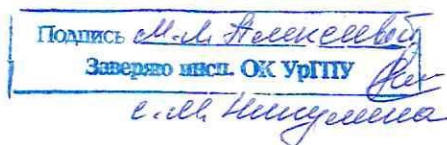 Подпись М.Л. Алексеевой
Заверяю инсп. ОК УрГПУ
Никулина